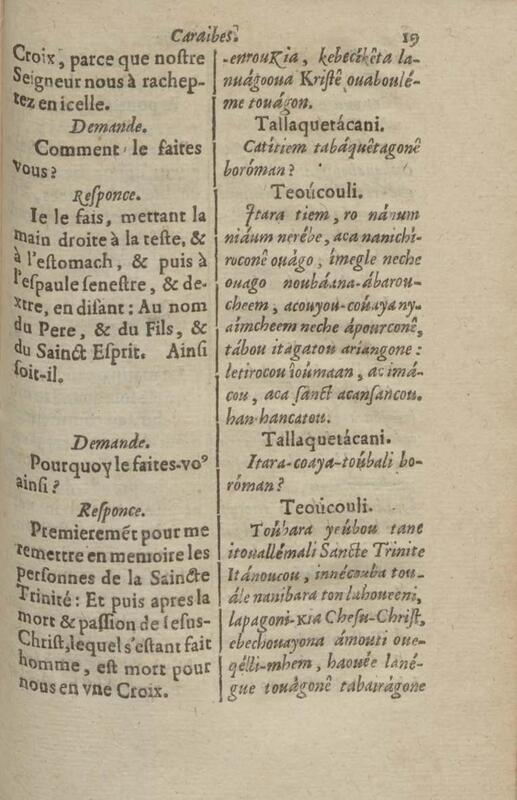 Caraibes. 19
Croix, parce que nostre
Seigneur nous à rachep-
tez en icelle.
Demande.
Comment le faites
vous?
Responce.
Ie le fais, mettant la
main droite à la teste, &
à l'estomach, & puis à
l'espaule senestre, & de-
xtre, en disant : Au nom
du Pere, & du Fils, &
du Sainct Esprit. Ainsi
soit-il.
Demande.
Pourquoy le faites-voꝰ
ainsi?
Responce.
Premieremẽt pour me
remettre en memoire les
personnes de la Saincte
Trinité : Et puis apres la
mort & passion de Iesus-
Christ, lequel s'estant fait
homme, est mort pour
nous en vne Croix.
-enrouKia, kebecikêta la-
nuágooua Kristê ouaboulé-
me touágon.
Tallaquetácani.
Catitiem tabáquêtagonê
boróman?
Teoúcouli.
Itara tiem, ro nánum
niáum nerébe, aca nanichi-
roconê ouágo, imegle neche
ouago noubáana-ábarou-
cheem, acouyou-coúaya ny-
aimcheem neche ápourconê,
tábou itagatou ariangone :
letirocou ioúmaan, acimá-
cou, aca sanct acansancou.
han hancatou.
Tallaquetácani.
Itara-coaya-toúbali bo-
róman?
Teoúcouli.
Toúbara yeúbou tane
itoualłémali Sancte Trinite
Itánoucou, innécouba tou-
ále nanibara ton lahouéeni,
lapagoni-kia Chesu-Christ,
chechouayona ámouti oue-
qélli-mhem, haouée lané-
gue touágonê tabairágone